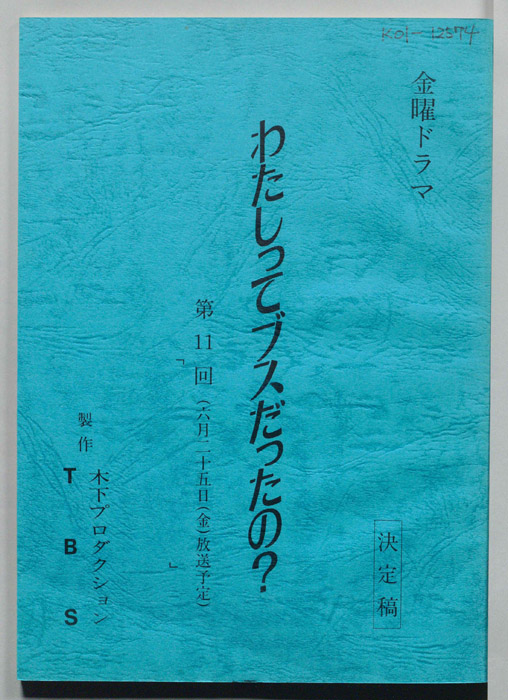 K01-12374
金曜ドラマ
わたしってブスだったの?
第11回(六月二十五日(金)放送予定)
「」
製作 木下プロダクション
TBS
決定稿